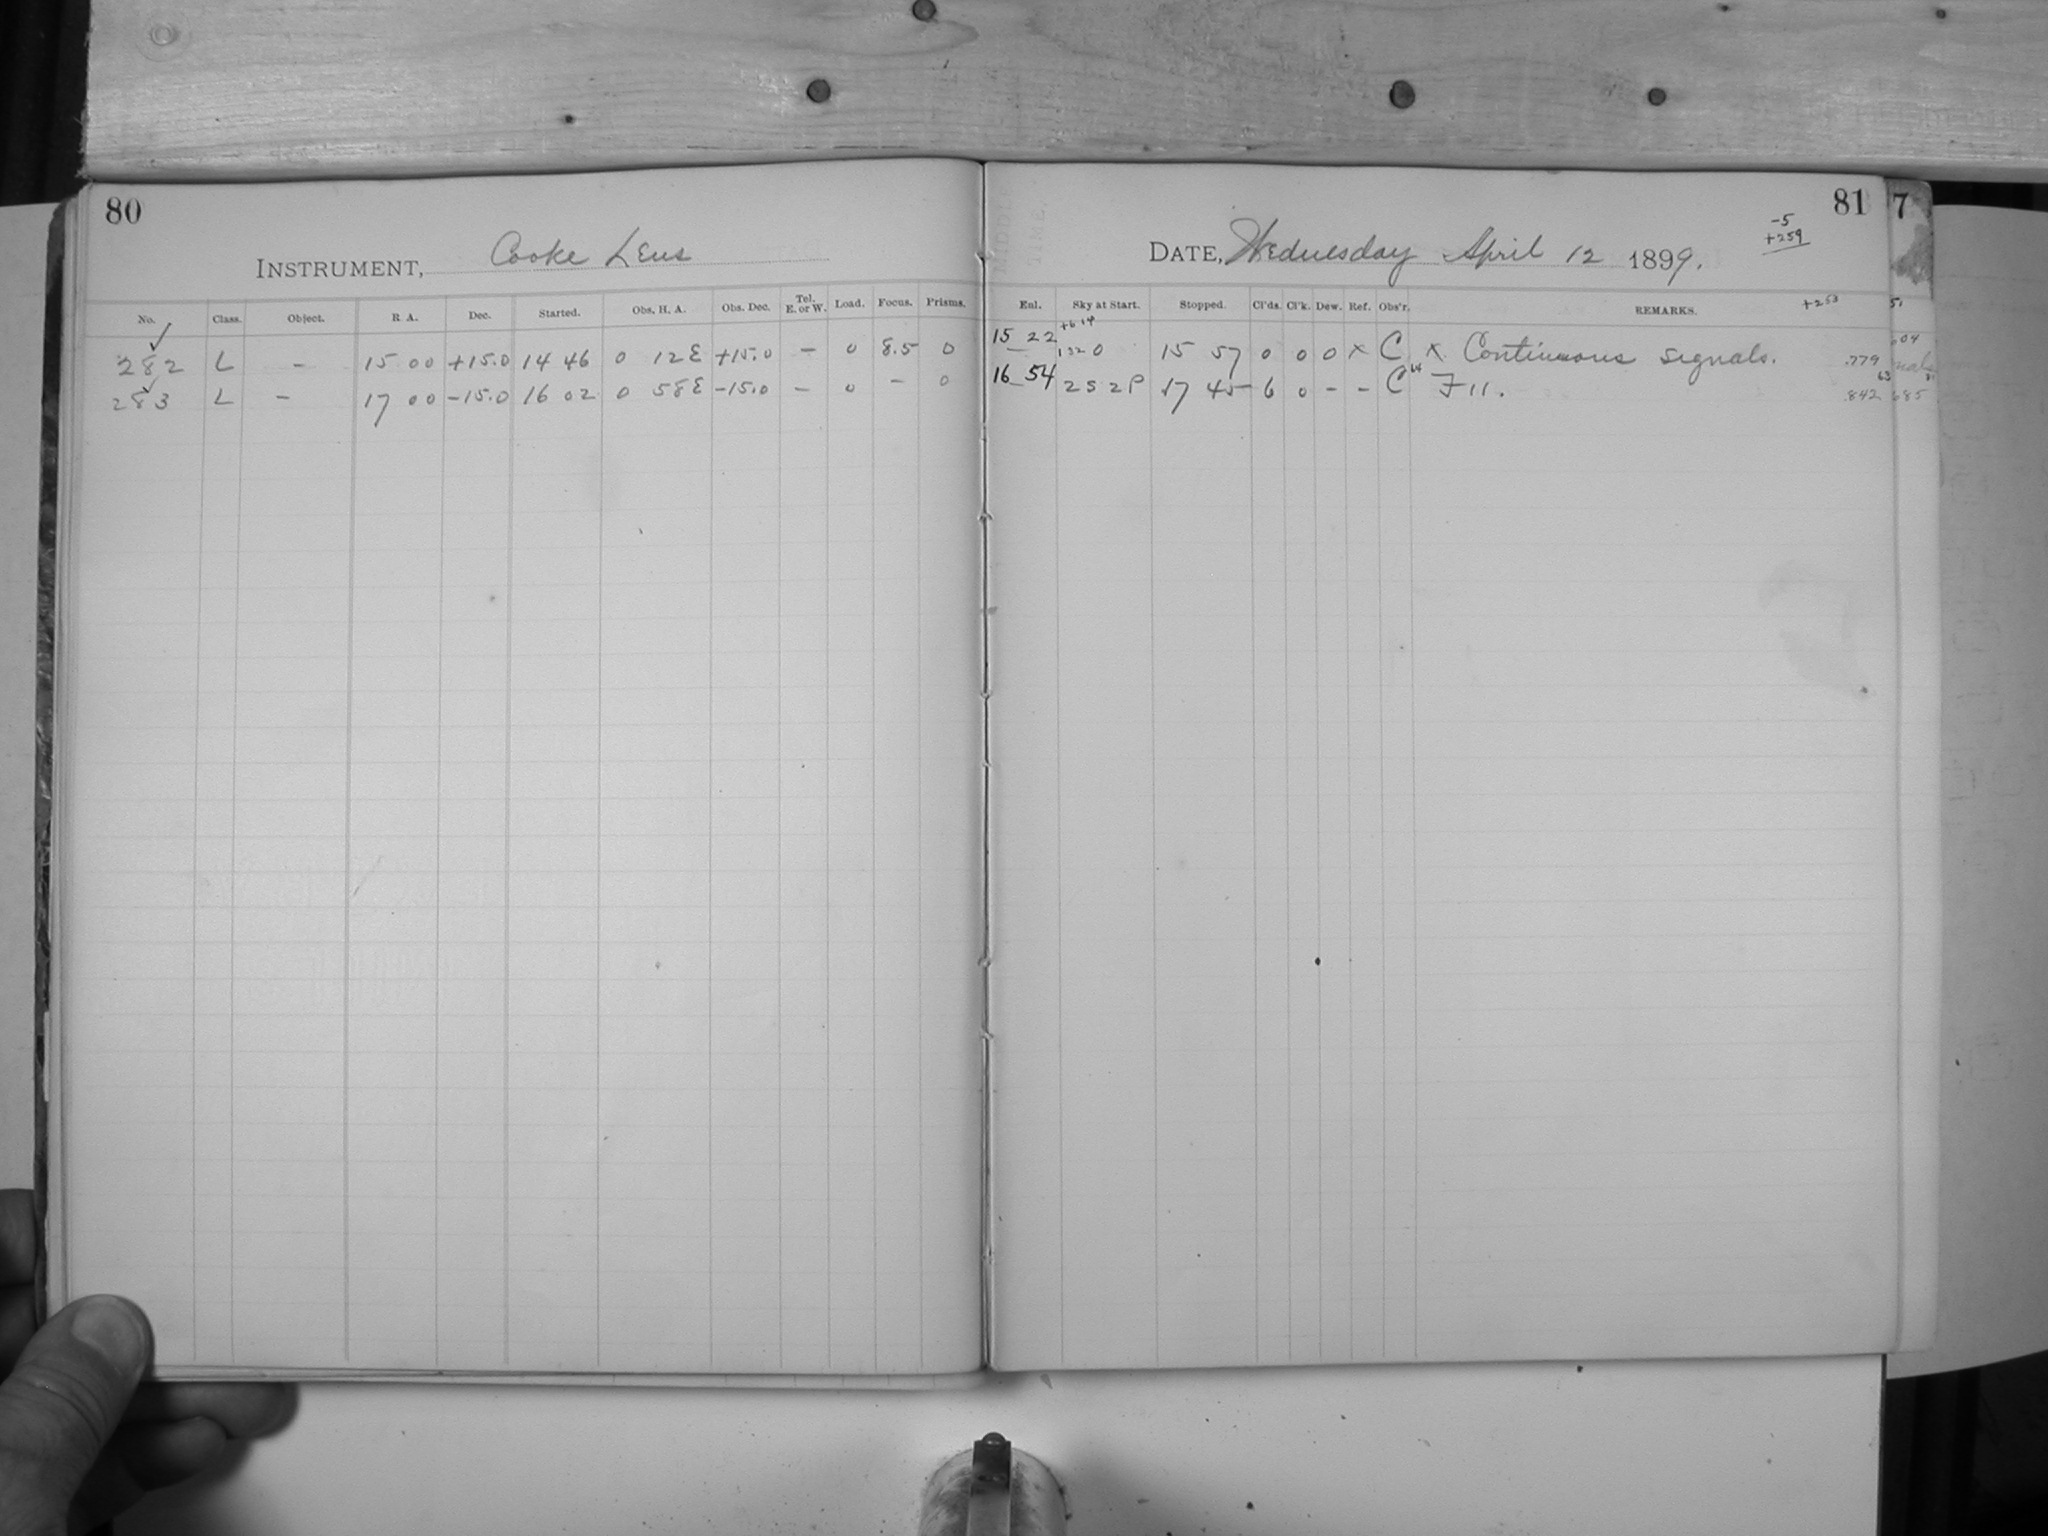 80
INSTRUMENT, Cooke Lens
No. Class. Object. R. A. Dec. Started. Obs. H. A. Obs. Dec. Tel. E. or W. Load. Focus. Prisms.
282 L – 15 00 +15.0 14 46 0 12 E +15.0 – 0 8.5 0
283 L – 17 00 –15.0 16 02 0 58 E –15.0 – 0 – 0
81
-5
+259
DATE, Wednesday April 12 1899.
Enl. Sky at Start. Stopped. Cl'ds. Cl'k. Dew. Ref. Obs'r. REMARKS. +253
15 22 0 15 57 0 0 0 × C × Continuous signals. .779
16 54 2 S 2 P 17 45 6 0 – – C F 11. .842
63
7
51
604
685